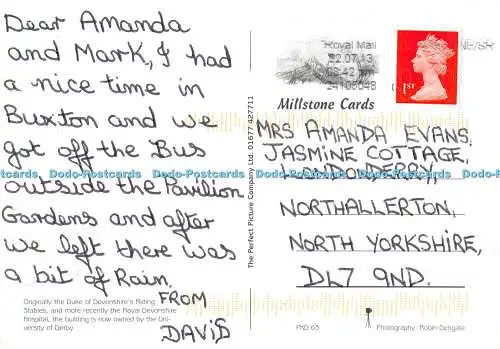 Dear Amanda
and Mark, I had
a nice time in
Buxton and we
got off the Bus
outside the Pavilion
Gardens and after
we left there was
a bit of Rain.
FROM
DAVID
Originally the Duke of Devonshire's Riding
Stables, and more recently the Royal Devonshire
hospital, the building is now owned by the Uni-
versity of Derby.
The Perfect Picture Company Ltd. 01677 427711
Royal Mail
22.07.13
24108048
1ST
Millstone Cards
MRS AMANDA EVANS,
JASMINE COTTAGE,
LONDONDERRY,
NORTHALLERTON,
NORTH YORKSHIRE,
DL7 9ND.
PND 63
Photography: Robin Dengate
Dodo-Postcards Dodo-Postcards Dodo-Postcards